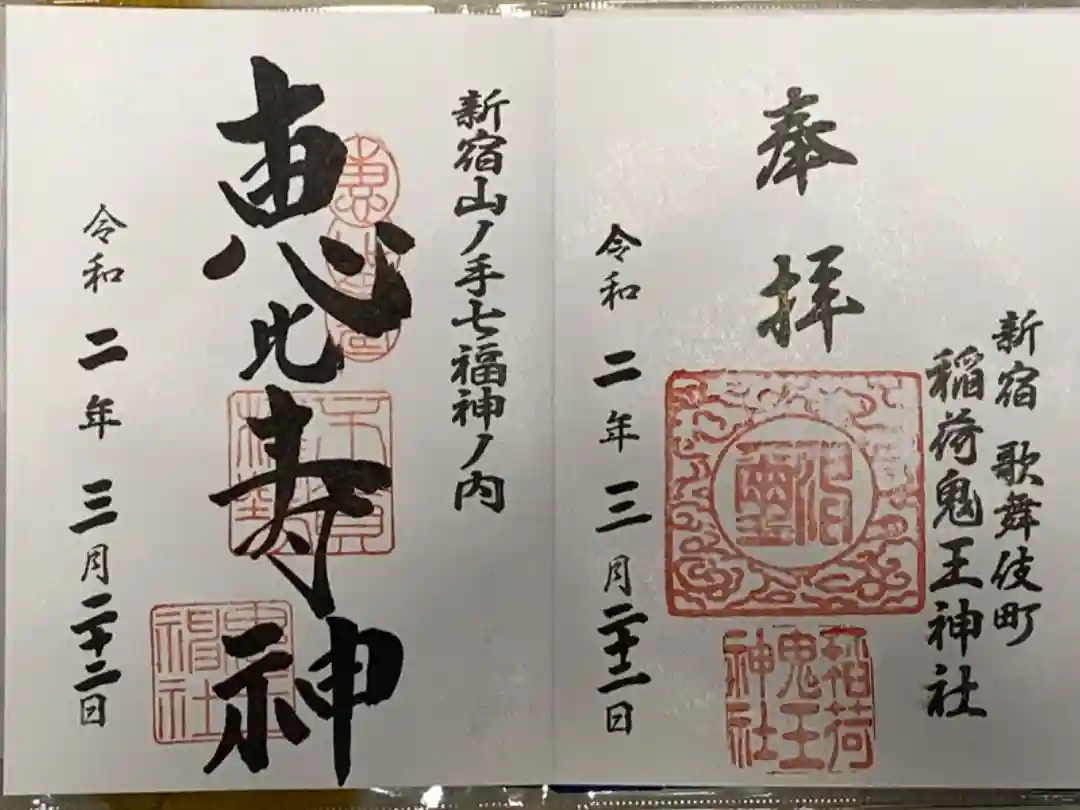 新宿 歌舞伎町
稲荷鬼王神社
奉拝
稲荷
鬼王
神社
令和二年三月二十二日
新宿山ノ手七福神ノ内
恵比寿神
令和二年三月二十二日